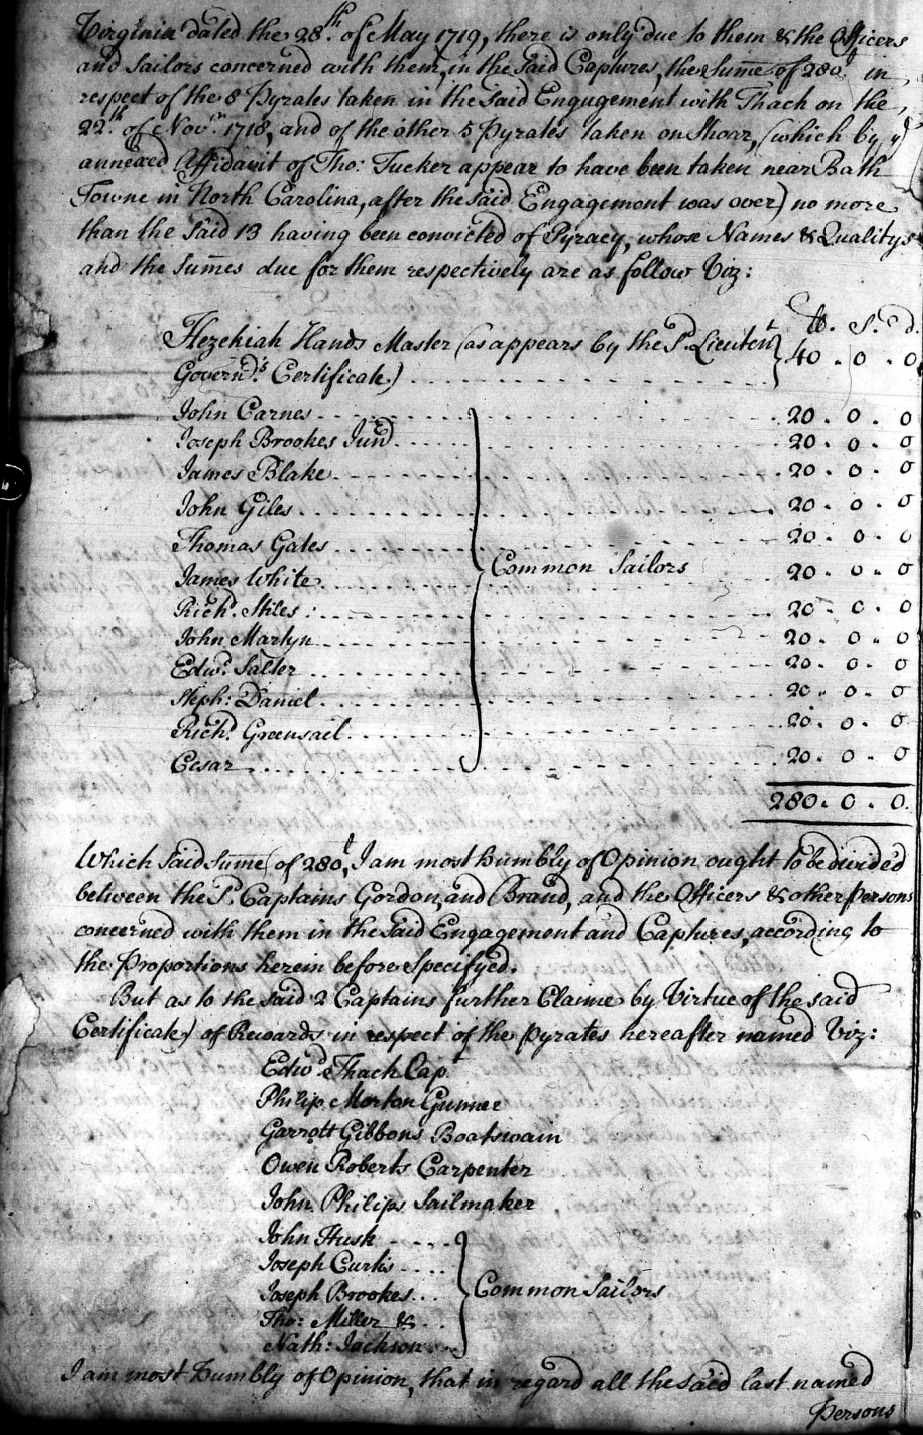 Virginia dated the 28th. of May 1719, there is only due to them & the Officers
and Sailors concerned with them, in the said Captures, the Sume of 280l in
respect of the 8 Pyrates taken in the said Engagement with Thach on the
22th. of Novr. 1718, and of the other 5 Pyrates taken on Shoar, (which by ye
annexed Affidavit of Tho: Tucker appear to have been taken near Bath
Towne in North Carolina, after the said Engagement was over) no more
than the said 13 having been convicted of Pyracy, whose Names & Qualitys
and the Sumes due for them respectively are as follow Viz:
lb. S. d.
Hezekiah Hands Master (as appears by the Sd. Lieutent
Governrs. Certificate) 40 . 0 . 0
John Carnes 20 . 0 . 0
Joseph Brookes Junr 20 . 0 . 0
James Blake 20 . 0 . 0
John Giles 20 . 0 . 0
Thomas Gates 20 . 0 . 0
James White Common Sailors 20 . 0 . 0
Richd. Stiles : 20 . 0 . 0
John Martyn 20 . 0 . 0
Edwd. Salter 20 . 0 . 0
Steph: Daniel 20 . 0 . 0
Richd. Greensail 20 . 0 . 0
Cesar 20 . 0 . 0
280 . 0 . 0
Which said Sume of 280l, I am most humbly of Opinion ought to be divided
between the Sd. Captains Gordon and Brand, and the Officers & other persons
concerned with them in the said Engagement and Captures, according to
the Proportions herein before Specifyed.
But as to the said 2 Captains further Claime by Virtue of the said
Certificate) of Rewards in respect of the Pyrates hereafter named Viz:
Edwd. Thach Capt
Philip Morton Gunner
Garrott Gibbons Boatswain
Owen Roberts Carpenter
John Philips Sailmaker
John Husk
Joseph Curtis
Joseph Brookes Common Sailors
Tho: Miller &
Nath: Jackson
I am most humbly of Opinion, that in regard all the said last named
Persons